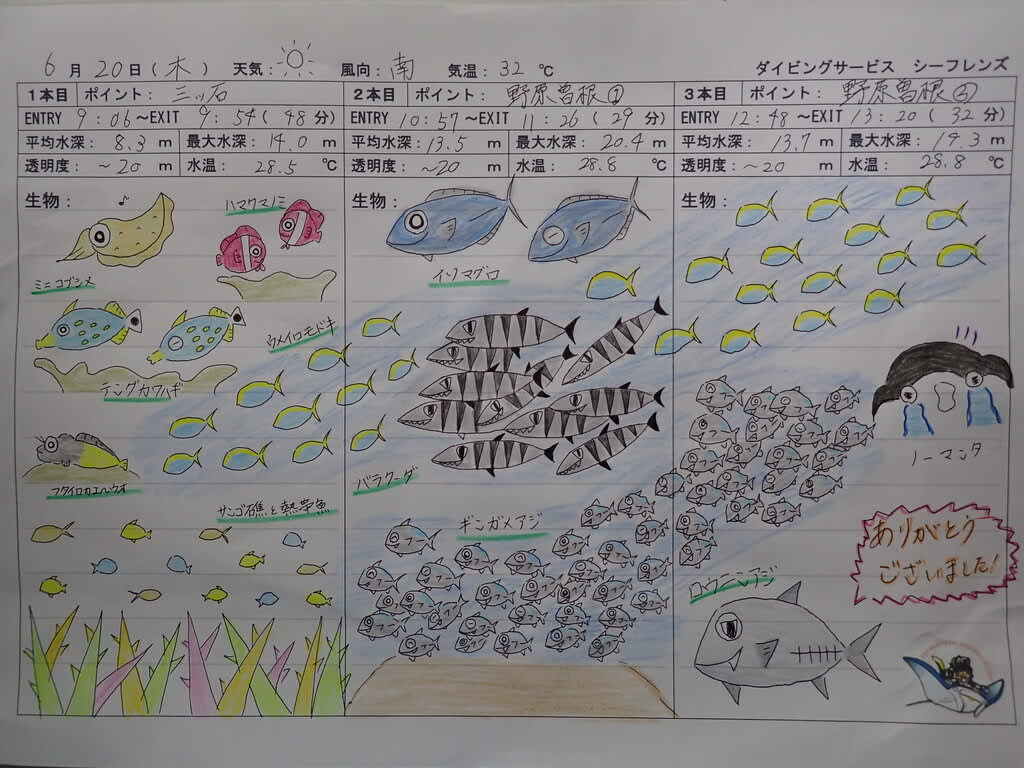 6月20日(木) 天気: 風向: 南 気温: 32 ℃ ダイビングサービス シーフレンズ
1本目 ポイント: 三ッ石
ENTRY 9:06~EXIT 9:54(48分)
平均水深: 8.3 m 最大水深: 14.0 m
透明度: ~20 m 水温: 28.5 ℃
生物:
ハマクマノミ
ミニコブシメ
ウメイロモドキ
テングカワハギ
フタイロカエルウオ
サンゴ礁と熱帯魚
2本目 ポイント: 野原曽根①
ENTRY 10:57~EXIT 11:26(29分)
平均水深: 13.5 m 最大水深: 20.4 m
透明度: ~20 m 水温: 28.8 ℃
生物:
イソマグロ
バラクーダ
ギンガメアジ
3本目 ポイント: 野原曽根
ENTRY 12:48~EXIT 13:20(32分)
平均水深: 13.7 m 最大水深: 19.3 m
透明度: ~20 m 水温: 28.8 ℃
生物:
ノーマンタ
ロウニンアジ
ありがとう
ございました!